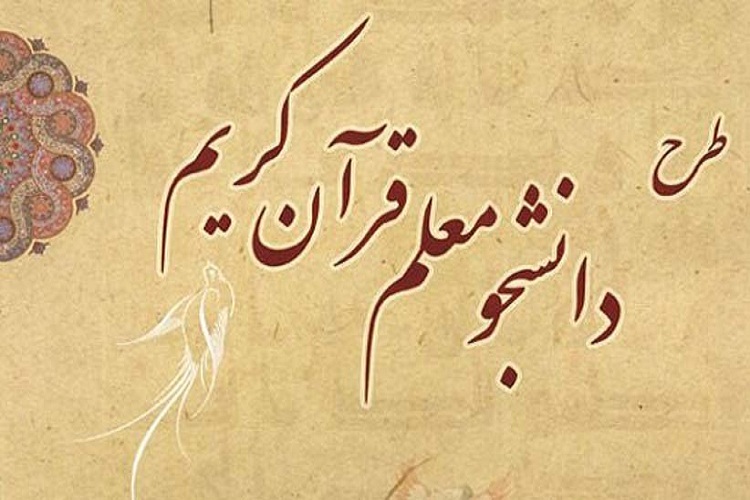 طرح
دانشجو معلم قرآن کریم